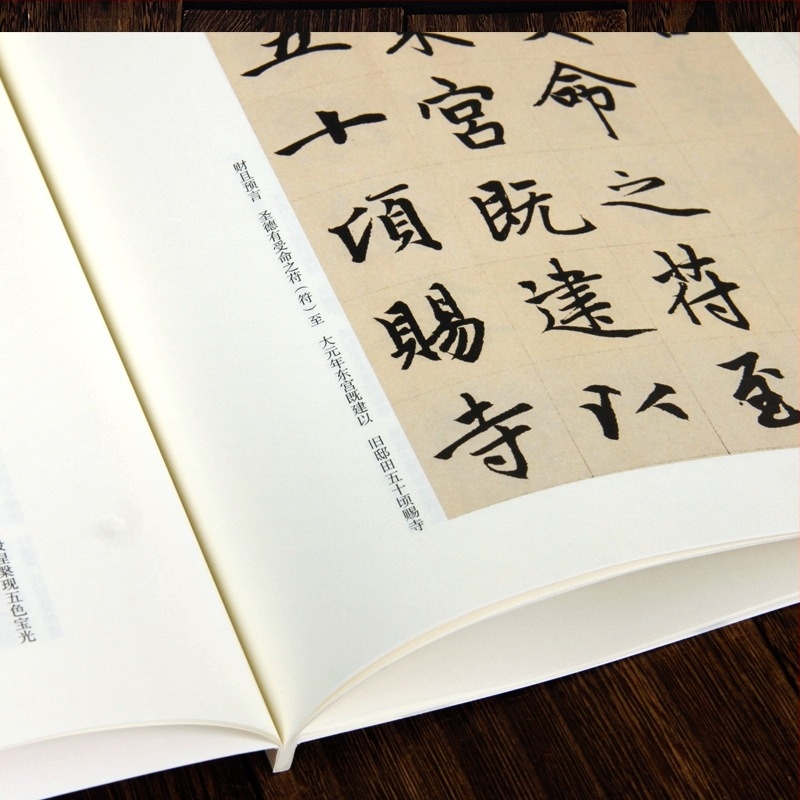 命之苻至
宮既建以
五十頃賜寺
财且预言 圣德有受命之苻（符）至 大元年东宫既建以 旧邸田五十顷赐寺
涅槃现五色宝光